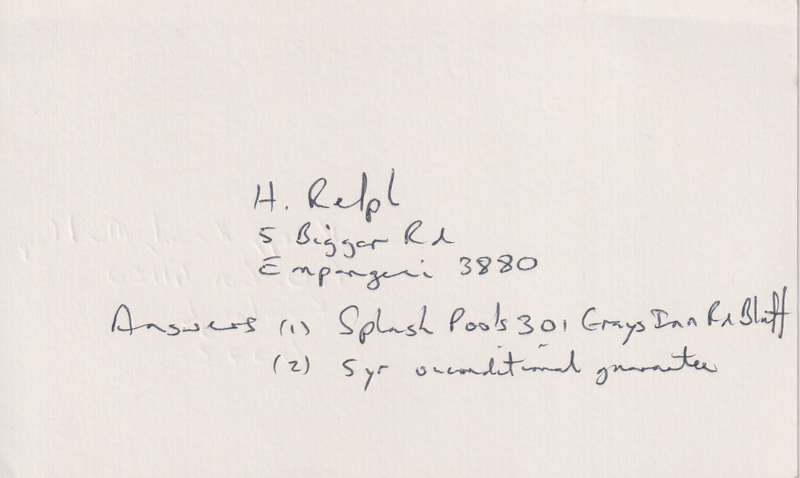 H. Relph
5 Biggar Rd
Empangeni 3880
Answers (1) Splash Pools 301 Grays Inn Rd Bluff
(2) 5 yr unconditional guarantee